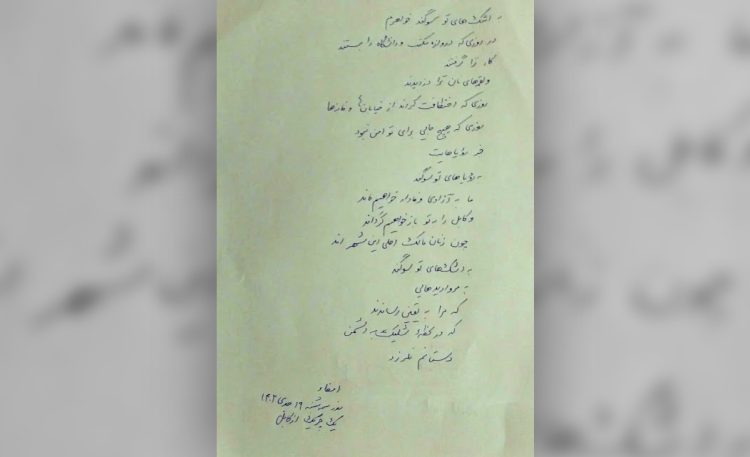 به اشک‌های تو سوگند خواهرم
در روزی که دروازه مکتب و دانشگاه را بستند
کار ترا گرفتند
و لقمه‌های نان ترا دزدیدند
روزی که اختطافت کردند از خیابان‌ها و مغازه‌ها
روزی که هیچ جایی برای تو امن نبود
جز رؤیاهایت
به رؤیاهای تو سوگند
ما به آزادی وفادار خواهیم ماند
و کابل را به تو باز خواهیم گرداند
چون زنان مالک اصلی این شهر اند
به اشک‌های تو سوگند
به مرواریدهایی
که مرا به یقین رساندند
که در لحظهٔ شلیک به دشمن
دستانم نلرزد
امضاء
روز سه‌شنبه ۱۹ جدی ۱۴۰۲
یک چریک از کابل